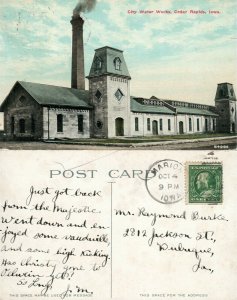 City Water Works, Cedar Rapids, Iowa.
POST CARD
Just got back
from the Majestic
Went down and en-
joyed some vaudeville
and some high kicking
Has Christy gone to
Oelwein yet?
So Long J.M.
MARION
OCT 4
9 PM
IOWA
Mr. Raymond Burke.
2812 Jackson St.,
Dubuque,
Ia.
THIS SPACE MAY BE USED FOR MESSAGE
THIS SPACE FOR ADDRESS